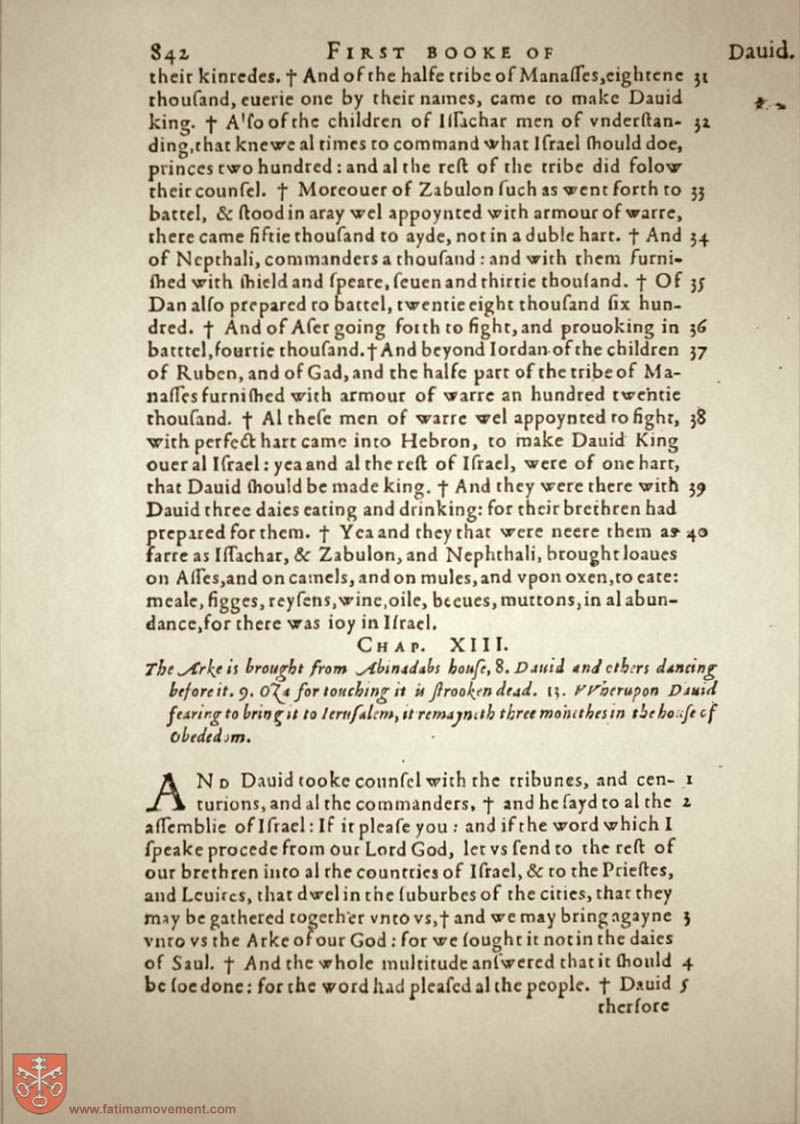 842 FIRST BOOKE OF Dauid.
their kinredes. † And of the halfe tribe of Manaſſes,eightene 31
thouſand, euerie one by their names, came to make Dauid
king. † A'ſo of the children of Iſſachar men of vnderſtan- 32
ding,that knewe al times to command what Iſrael ſhould doe,
princes two hundred : and al the reſt of the tribe did folow
their counſel. † Moreouer of Zabulon ſuch as went forth to 33
battel, & ſtood in aray wel appoynted with armour of warre,
there came fiftie thouſand to ayde, not in a duble hart. † And 34
of Nepthali, commanders a thouſand : and with them furni-
ſhed with ſhield and ſpeare, ſeuen and thirtie thouſand. † Of 35
Dan alſo prepared to battel, twentie eight thouſand ſix hun-
dred. † And of Aſer going forth to fight, and prouoking in 36
batttel,fourtie thouſand.† And beyond Iordan of the children 37
of Ruben, and of Gad, and the halfe part of the tribe of Ma-
naſſes furniſhed with armour of warre an hundred twentie
thouſand. † Al theſe men of warre wel appoynted to fight, 38
with perfect hart came into Hebron, to make Dauid King
ouer al Iſrael : yea and al the reſt of Iſrael, were of one hart,
that Dauid ſhould be made king. † And they were there with 39
Dauid three daies eating and drinking: for their brethren had
prepared for them. † Yea and they that were neere them as 40
farre as Iſſachar, & Zabulon, and Nephthali, brought loaues
on Aſſes,and on camels, and on mules, and vpon oxen, to eate:
meale, figges, reyſens, wine, oile, beeues, muttons, in al abun-
dance, for there was ioy in Iſrael.
CHAP. XIII.
The Arke is brought from Abinadabs houſe, 8. Dauid and others dancing
before it. 9. Oza for touching it is ſtrooken dead. 13. VVherupon Dauid
fearing to bring it to Ieruſalem, it remayneth three monethes in the houſe of
Obededom.
AND Dauid tooke counſel with the tribunes, and cen- 1
turions, and al the commanders, † and he ſayd to al the 2
aſſemblie of Iſrael : If it pleaſe you : and if the word which I
ſpeake procede from our Lord God, let vs ſend to the reſt of
our brethren into al the countries of Iſrael, & to the Prieſtes,
and Leuites, that dwel in the ſuburbes of the cities, that they
may be gathered together vnto vs, † and we may bring agayne 3
vnto vs the Arke of our God : for we ſought it not in the daies
of Saul. † And the whole multitude anſwered that it ſhould 4
be ſoe done : for the word had pleaſed al the people. † Dauid 5
therfore
www.fatimamovement.com